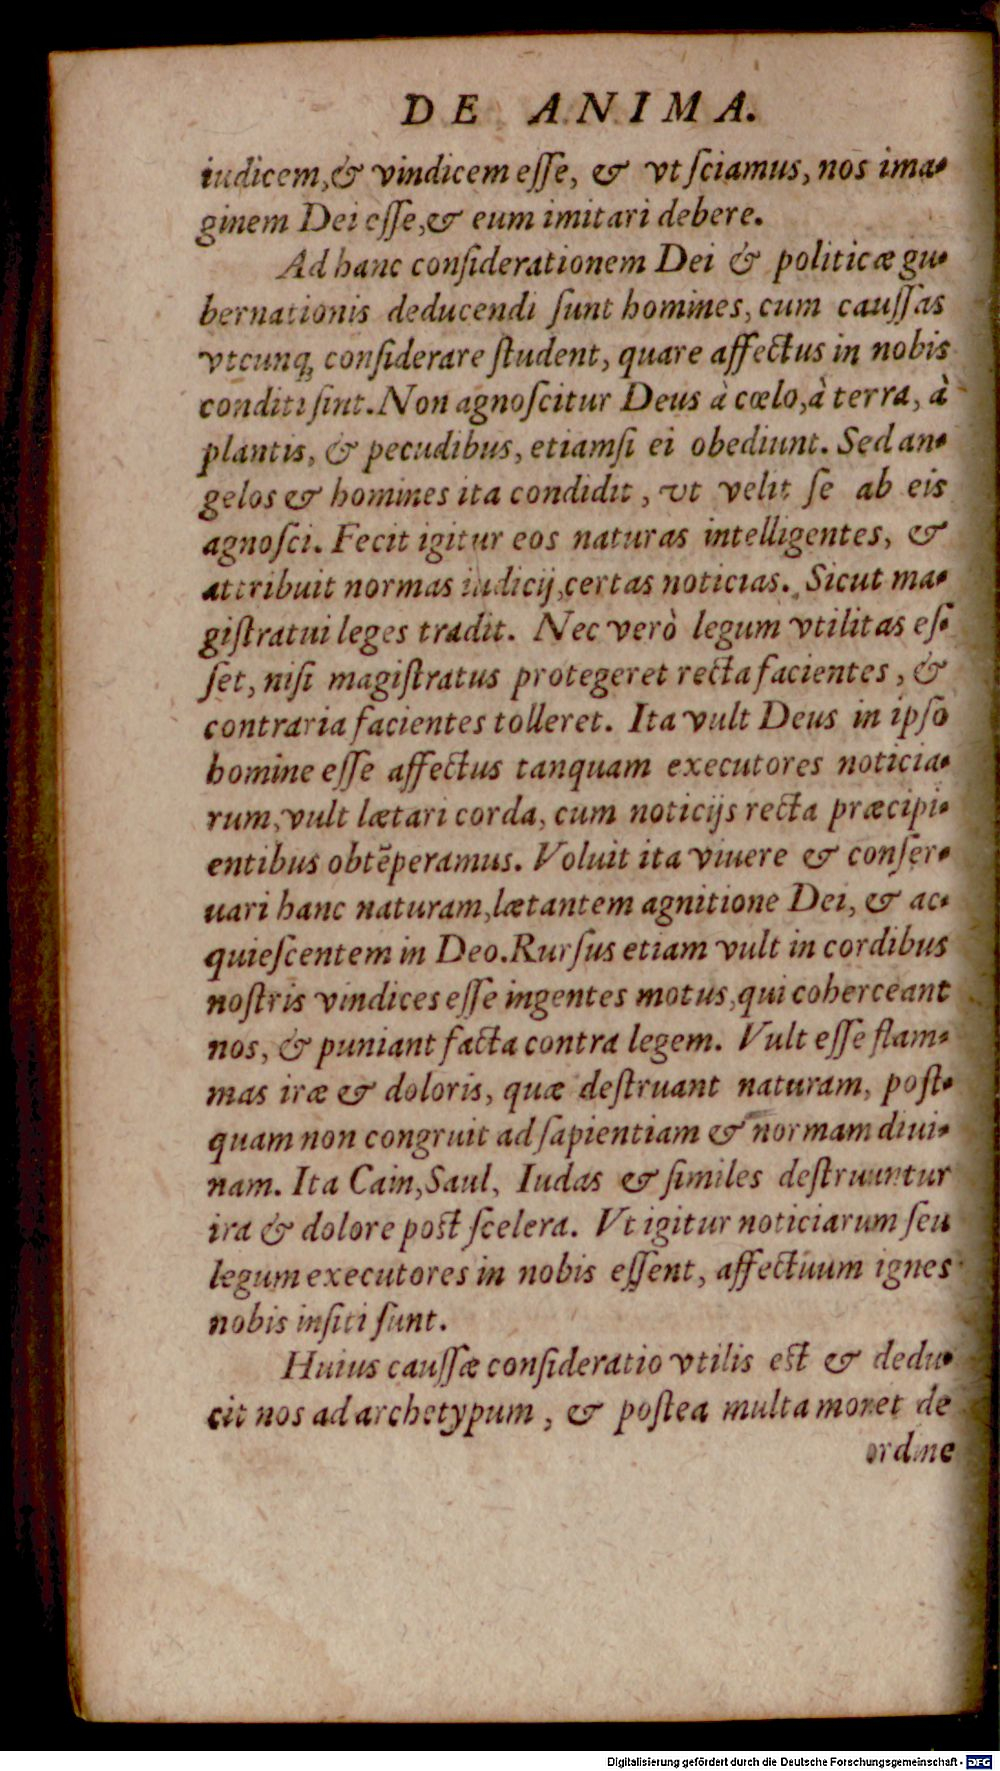 DE ANIMA.
iudicem, & vindicem eſſe, & vt ſciamus, nos ima-
ginem Dei eſſe, & eum imitari debere.
Ad hanc conſiderationem Dei & politicæ gu-
bernationis deducendi ſunt homines, cum cauſſas
vtcunq; conſiderare ſtudent, quare affectus in nobis
conditi ſint. Non agnoſcitur Deus à cœlo, à terra, à
plantis, & pecudibus, etiamſi ei obediunt. Sed an-
gelos & homines ita condidit, vt velit ſe ab eis
agnoſci. Fecit igitur eos naturas intelligentes, &
attribuit normas iudicij, certas noticias. Sicut ma-
giſtratui leges tradit. Nec verò legum vtilitas eſ-
ſet, niſi magiſtratus protegeret recta facientes, &
contraria facientes tolleret. Ita vult Deus in ipſo
homine eſſe affectus tanquam executores noticia-
rum, vult lætari corda, cum noticijs recta præcipi-
entibus obtẽperamus. Voluit ita viuere & conſer-
uari hanc naturam, lætantem agnitione Dei, & ac-
quieſcentem in Deo. Rurſus etiam vult in cordibus
noſtris vindices eſſe ingentes motus, qui coherceant
nos, & puniant facta contra legem. Vult eſſe flam-
mas iræ & doloris, quæ deſtruant naturam, poſt-
quam non congruit ad ſapientiam & normam diui-
nam. Ita Cain, Saul, Iudas & ſimiles deſtruuntur
ira & dolore poſt ſcelera. Vt igitur noticiarum ſeu
legum executores in nobis eſſent, affectuum ignes
nobis inſiti ſunt.
Huius cauſſæ conſideratio vtilis eſt & dedu-
cit nos ad archetypum, & poſtea multa monet de
ordine
Digitalisierung gefördert durch die Deutsche Forschungsgemeinschaft - DFG